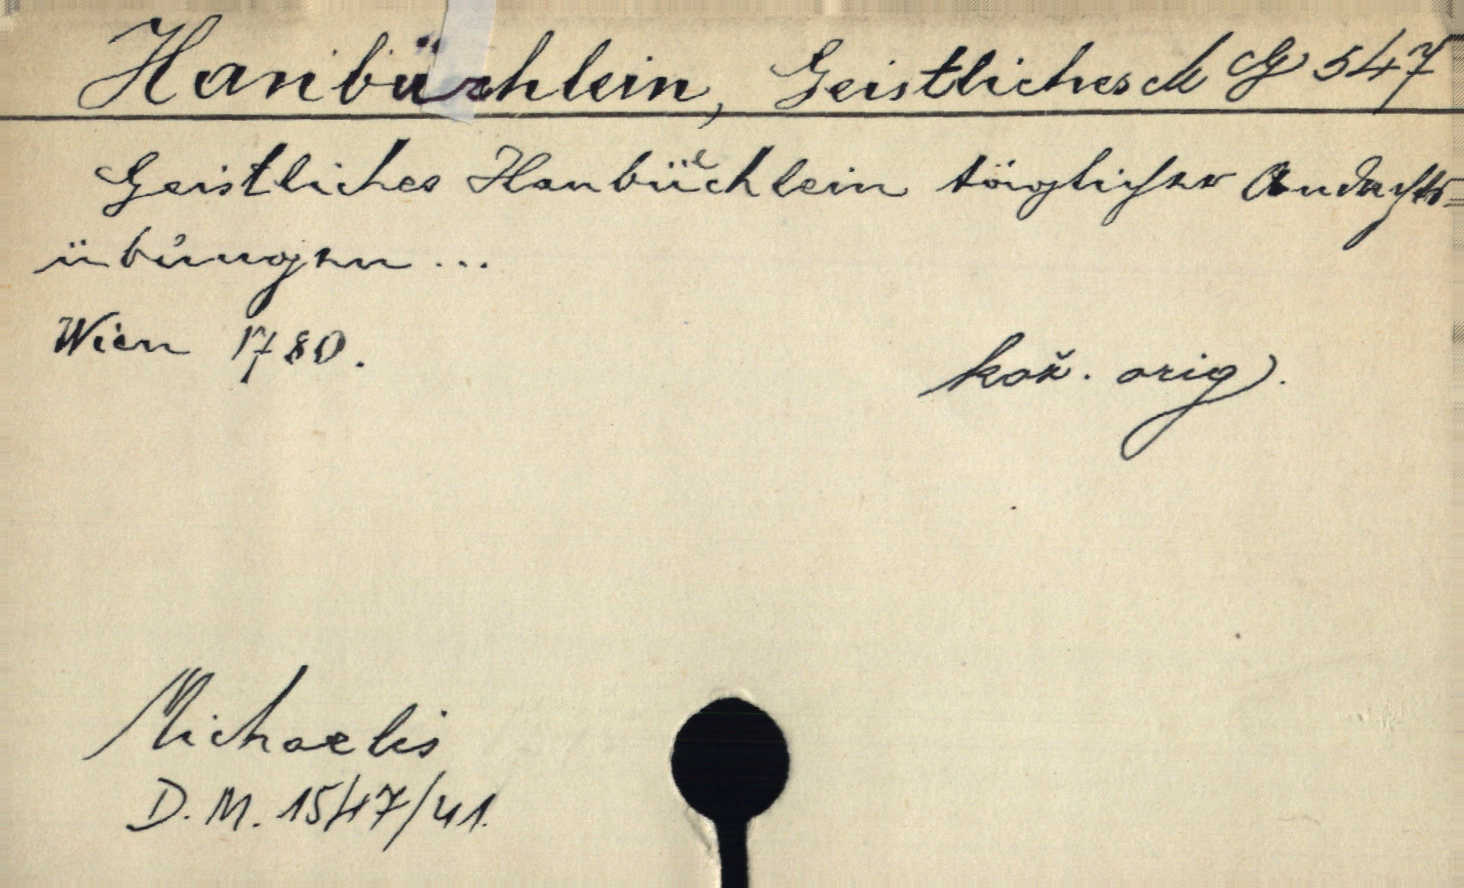 Hanbüchlein, Geistliches ck G 547
Geistliches Hanbüchlein täglicher Andachts=
übungen ...
Wien 1780.
kož. orig.
Michaelis
D. M. 1547/41.